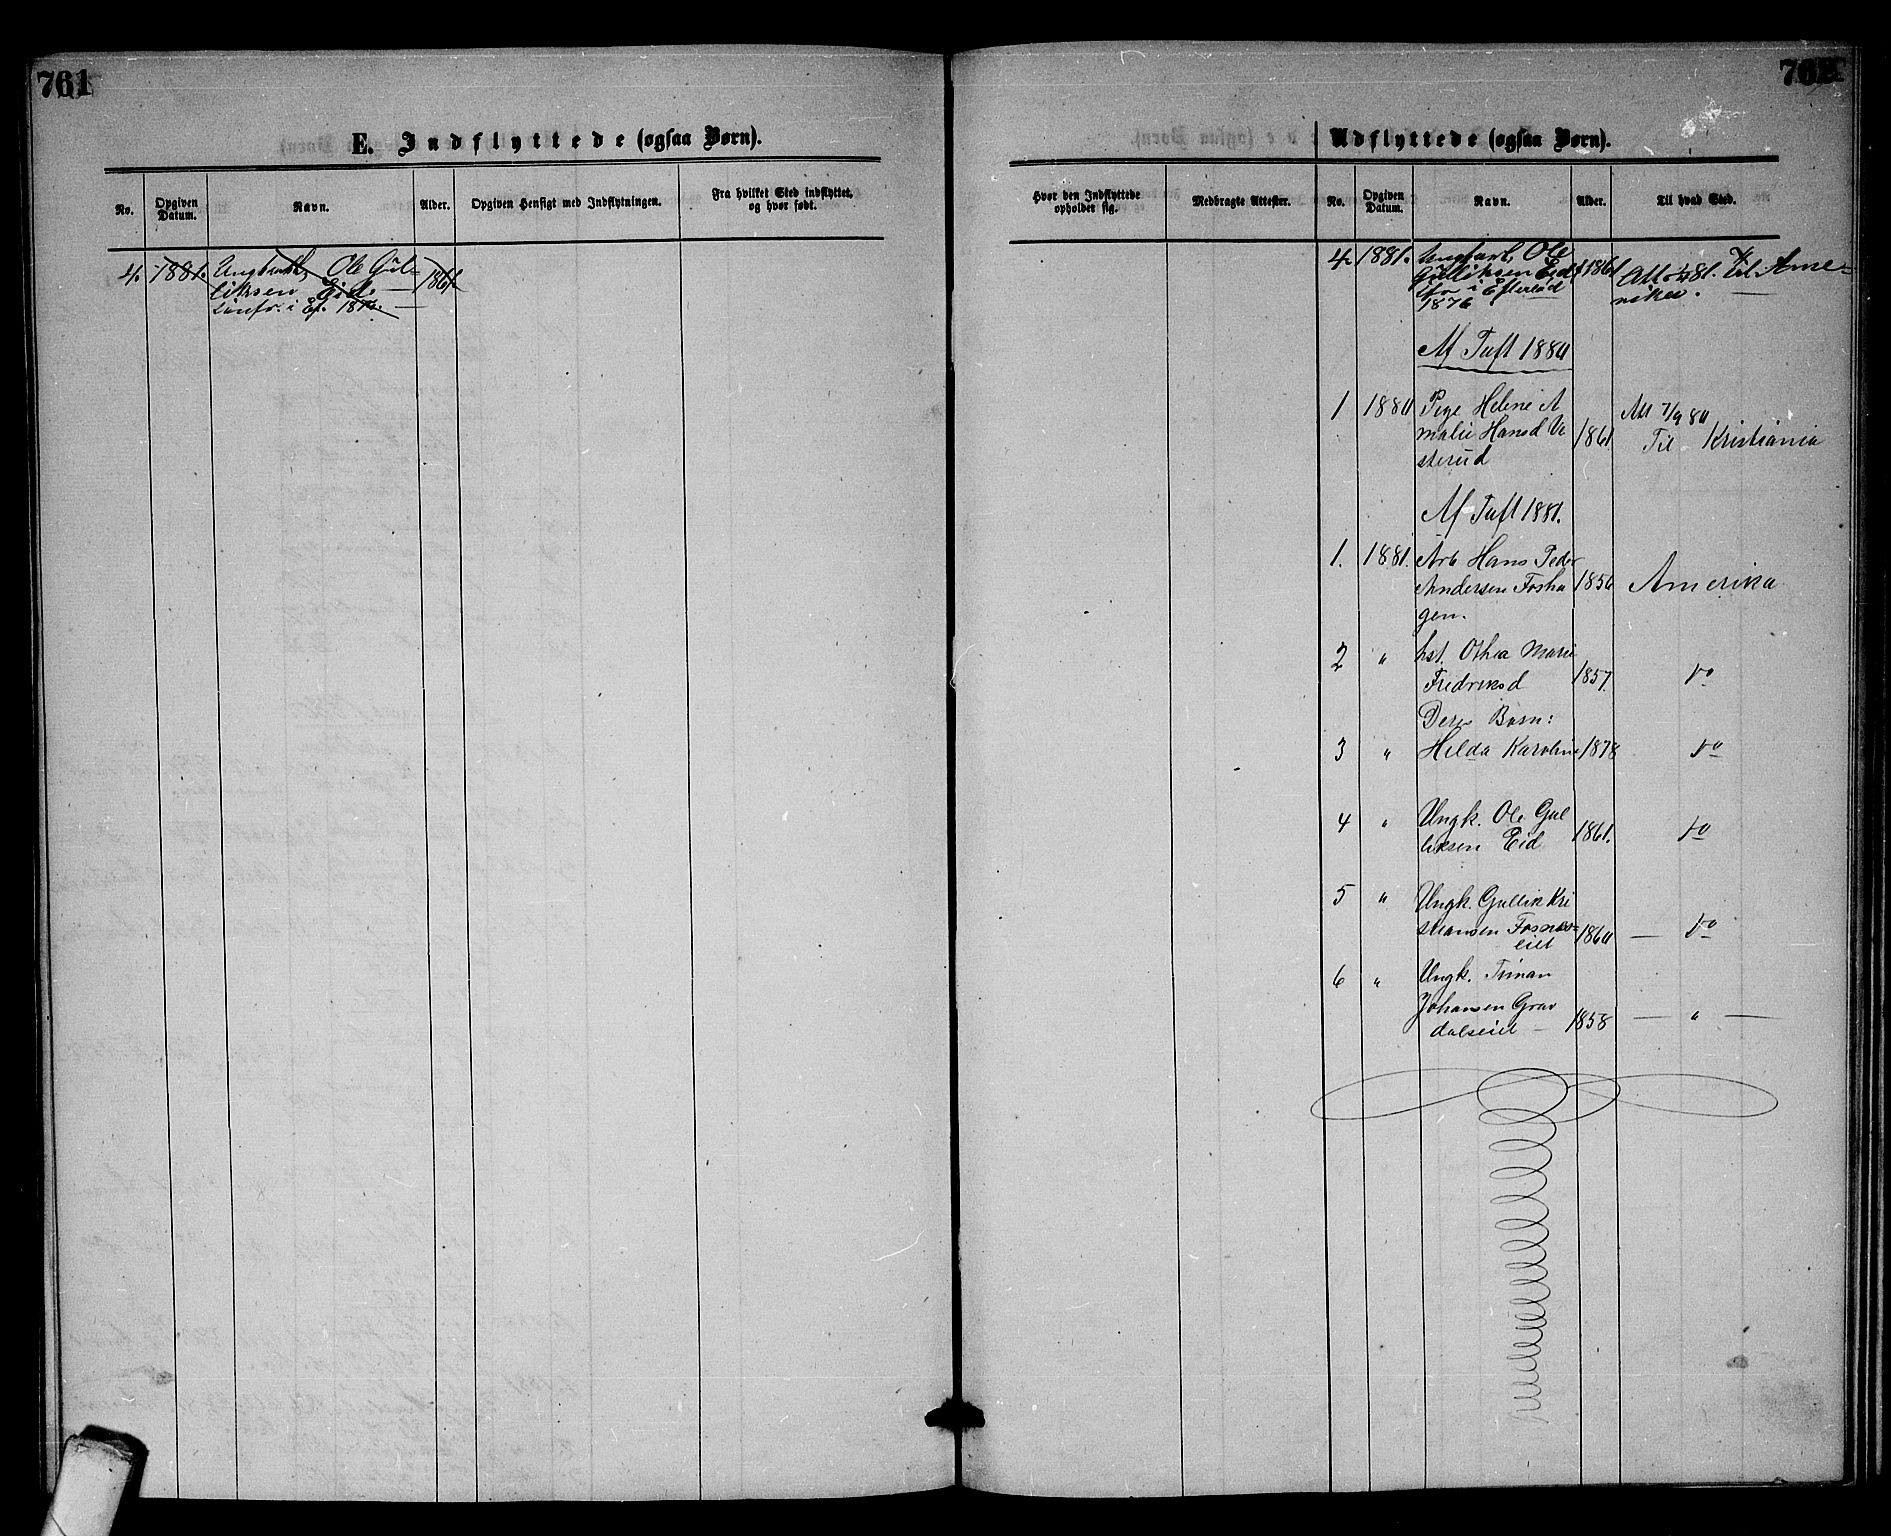 761
E. Indflyttede (ogsaa Børn).
No. Opgiven Datum. Navn. Alder. Opgiven Hensigt med Indflytningen. Fra hvilket Sted indflyttet, og hvor født.
4. 1881. Ungkarl, Ole Gul-
liksen Eid. 1861.
i Ef. 1876.
762
Udflyttede (ogsaa Børn).
Hvor den Indflyttede opholder sig. Medbragte Attester. No. Opgiven Datum. Navn. Alder. Til hvad Sted.
4. 1881. Ungkarl, Ole
Gulliksen Eid, 1861 Att. 81. Til Ame-
i Eftelød rika.
1876
Af Tuft 1880
1 1880 Pige Helene A
malie Hansd Ve
sterud 1861 Att 7/9 80
Til Kristiania
Af Tuft 1881.
1. 1881. Arb Hans Peder
Andersen Fosha 1856 Amerika
gen.
2 " hst. Othea Marie
Fredriksd 1857. do
Deres Barn:
3 " Hilda Karoline 1878 do
4 " Ungk. Ole Gul
liksen Eid 1861. do
5 " Ungk. Gullik Kri
stiansen Fosnæs=
eiet 1860 — do
6 " Ungk. Timan
Johansen Grav
dalseiet — 1858 — " —